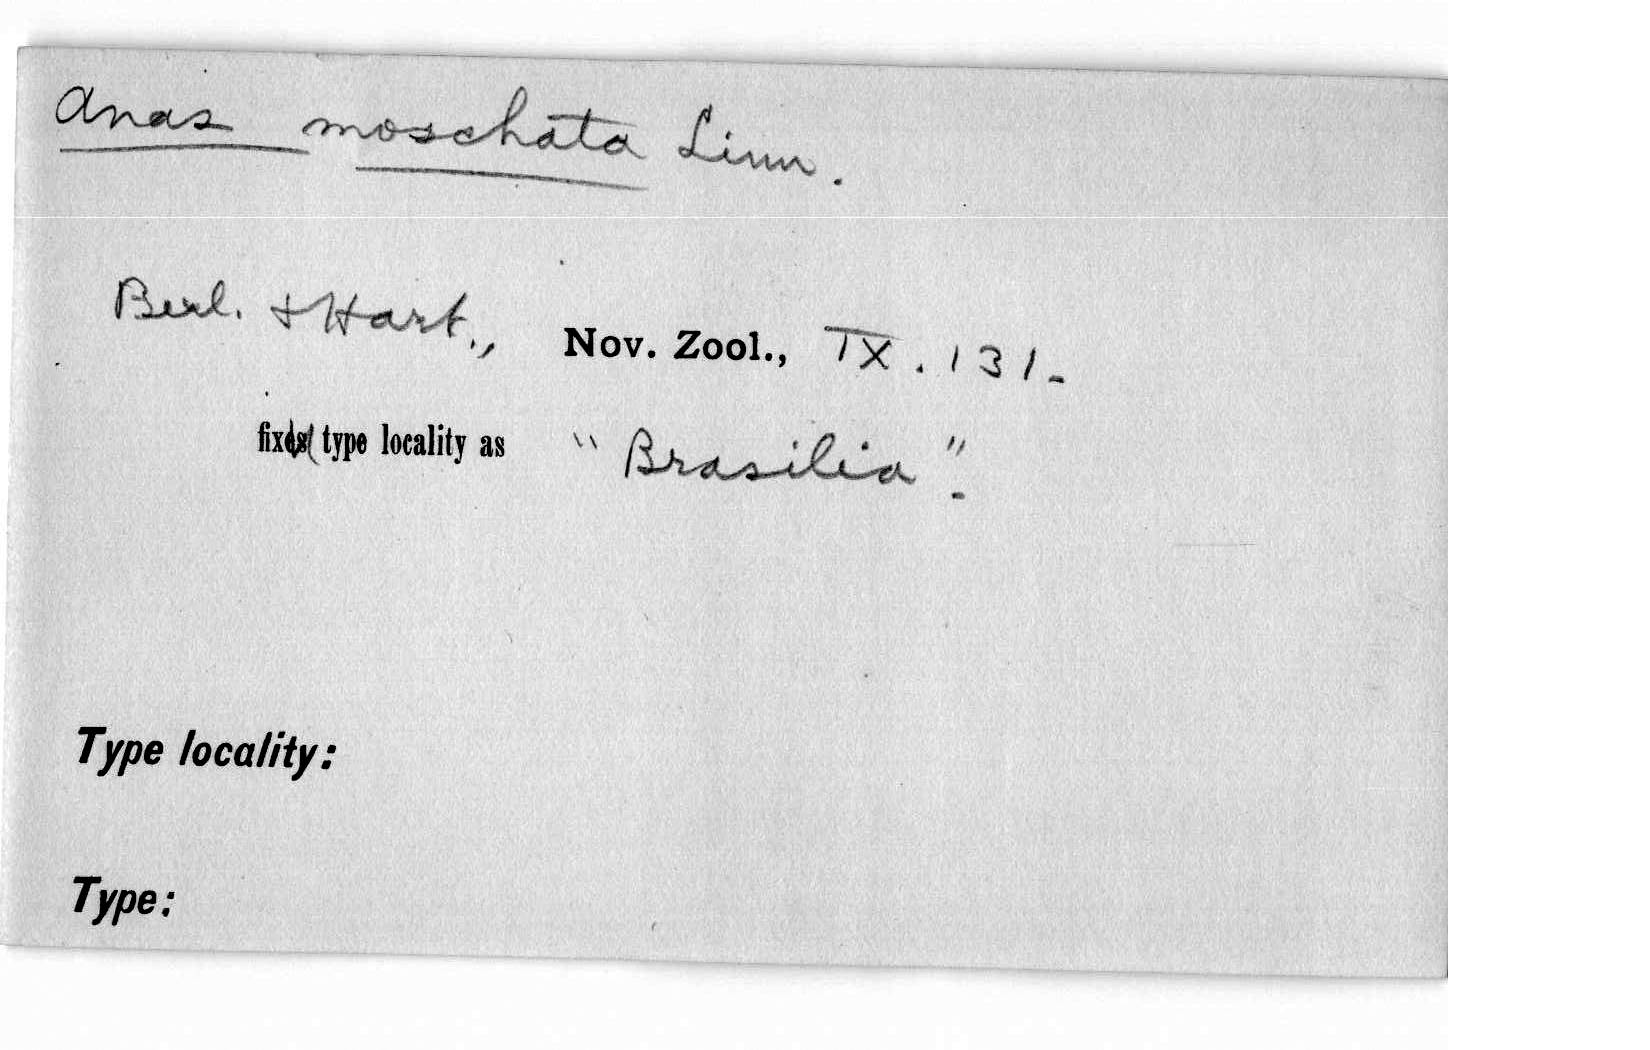 Anas moschata Linn.
Berl. & Hart., Nov. Zool., IX. 131-
fixes type locality as "Brasilia".
Type locality:
Type: